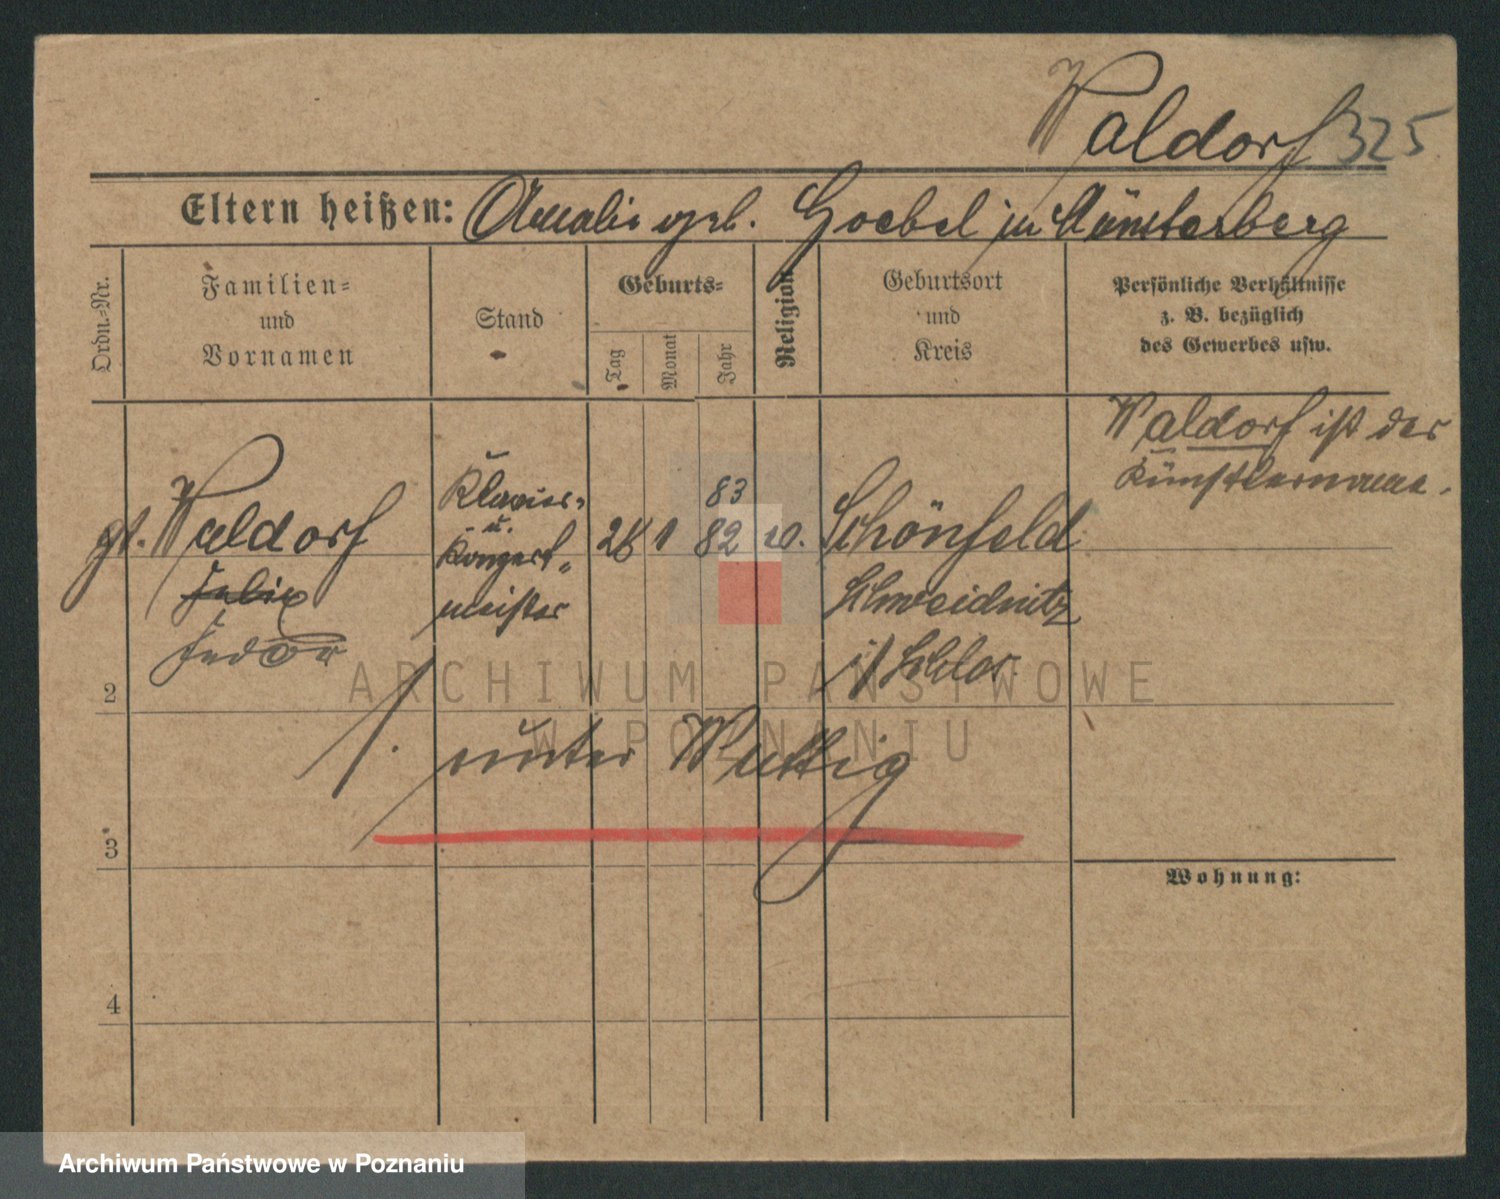 Waldorf 325
Eltern heißen: Amalie geb. Goebel in Münsterberg
Ordn.-Nr.
Familien-
und
Vornamen
Stand
Geburts-
Tag
Monat
Jahr
Religion
Geburtsort
und
Kreis
Persönliche Verhältnisse
z. B. bezüglich
des Gewerbes usw.
Waldorf ist der
Künstlername.
gt. Waldorf
Felix
Fedor
Klavier-
u.
Konzert-
meister
28 1
83
82
Schönfeld
Schweidnitz
i/ Schles.
2
ARCHIWUM PAŃSTWOWE
W POZNANIU
f. unter Wuttig
3
Wohnung:
4
Archiwum Państwowe w Poznaniu